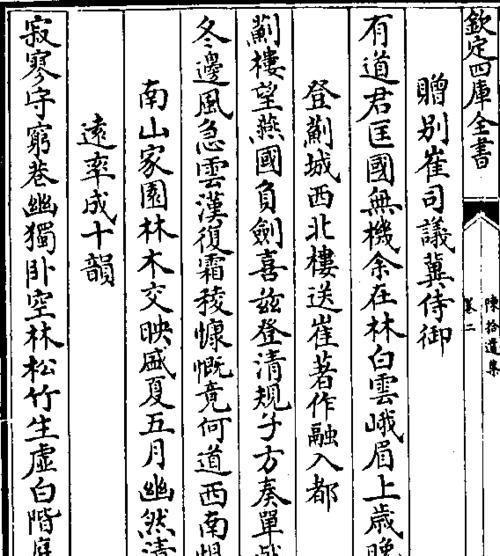 欽定四庫全書
陳拾遺集
卷二
贈别崔司議冀侍御
有道君匡國無機余在林白雲峨眉上歲晚
登薊城西北樓送崔著作融入都
薊樓望燕國負劍喜兹登清規子方奏單戟
冬邊風急雲漢復霜稜慷慨竟何道西南恨
南山家園林木交映盛夏五月幽然清
遠率成十韻
寂寥守窮巷幽獨卧空林松竹生虚白階庭